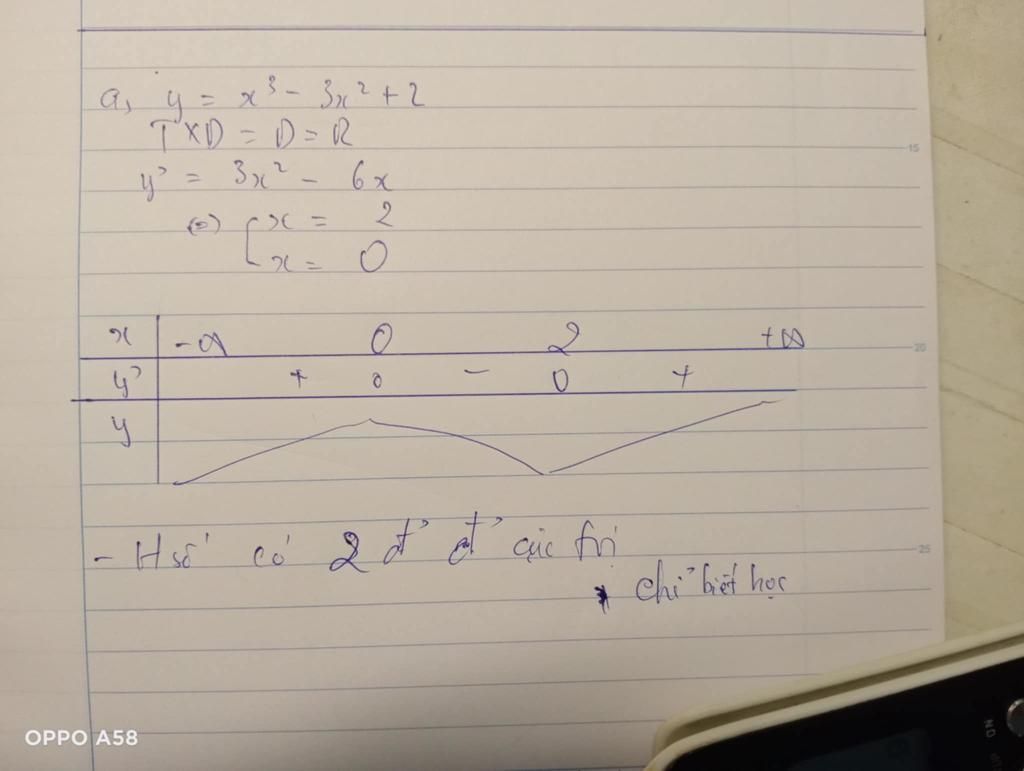 a, y = x³ - 3x² + 2
TXD = D = R
y' = 3x² - 6x
(=) [ x = 2
x = 0
x -∞ 0 2 +∞
y' + 0 - 0 +
y
- H số có 2 đ' cực trị
* chỉ biết học
15
20
25
OPPO A58